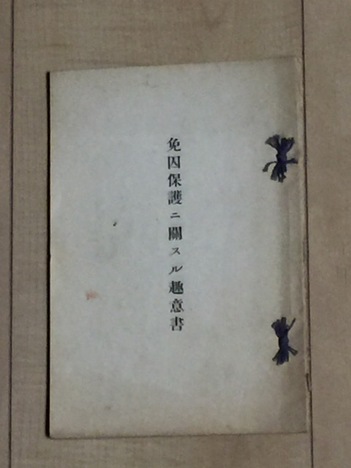 免囚保護ニ關スル趣意書